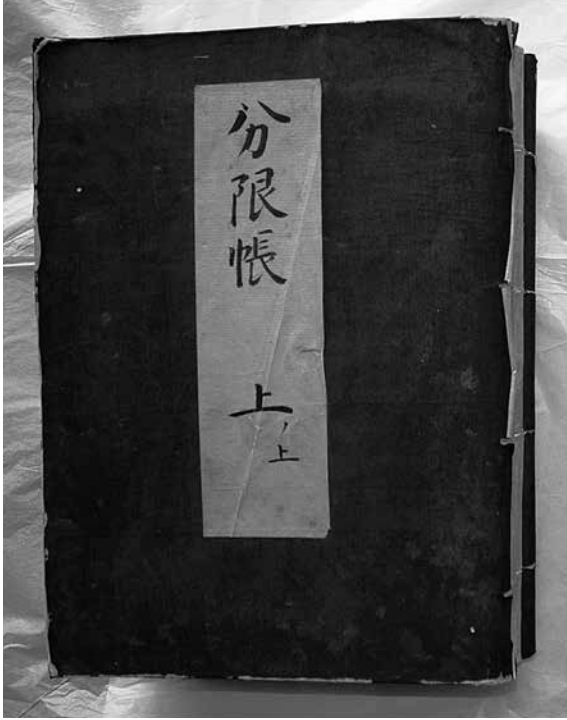 分限帳 上ノ上